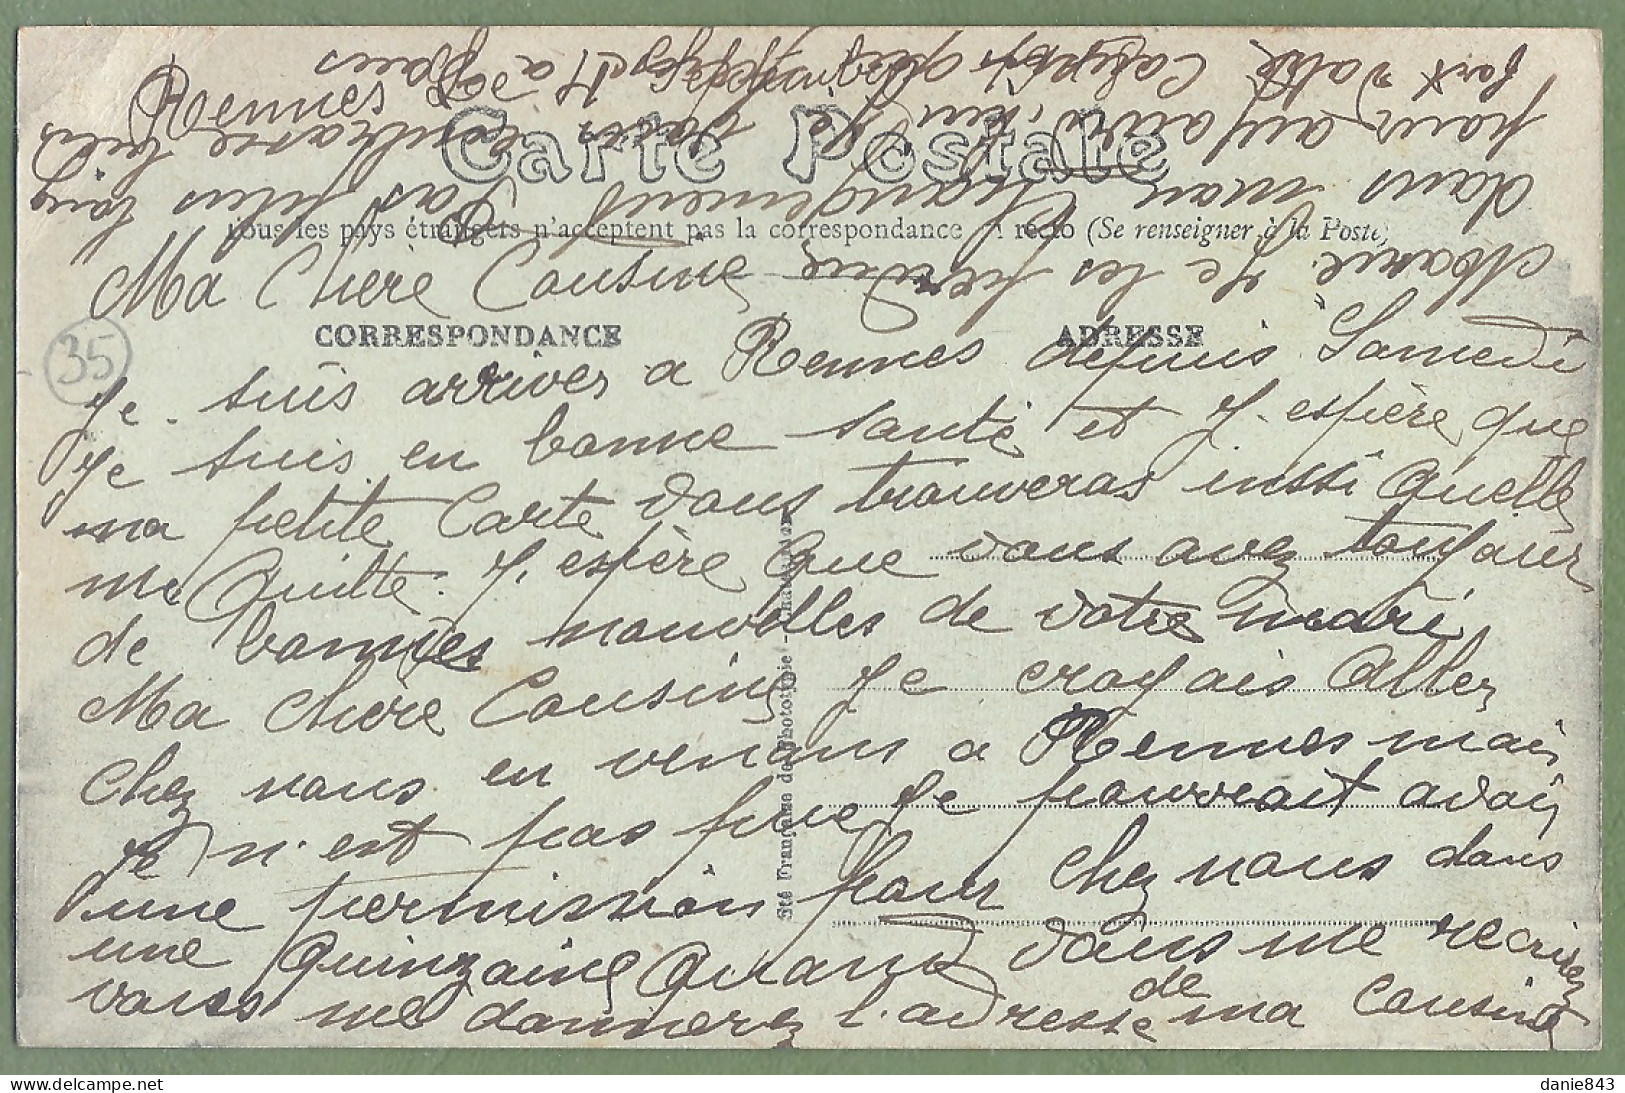 Carte Postale
Tous les pays étrangers n'acceptent pas la correspondance au recto (Se renseigner à la Poste)
CORRESPONDANCE
ADRESSE
35
Ma Chère Cousine
Je suis arriver a Rennes depuis Samedi
Je suis en bonne santé et J. espère que
ma petite Carte vous trouveras inssi quelle
me Quitte. J. espère que vous avez toujour
de bonnes nouvelles de votre mari
Ma chère Cousine Je croyais aller
chez nous en venant a Rennes mais
Je n. est pas pue Je pouvrait avoir
une permission pour chez nous dans
une Quinzaine Quand vous me recrivez
vous me donnerez l. adresse de ma Cousine
Marie. Je les perdue
dans mon Changement Pas plus loins
pour aujourd. Je vous embrasse
Rennes
a Paris
Sté Française de Phototypie
danie843